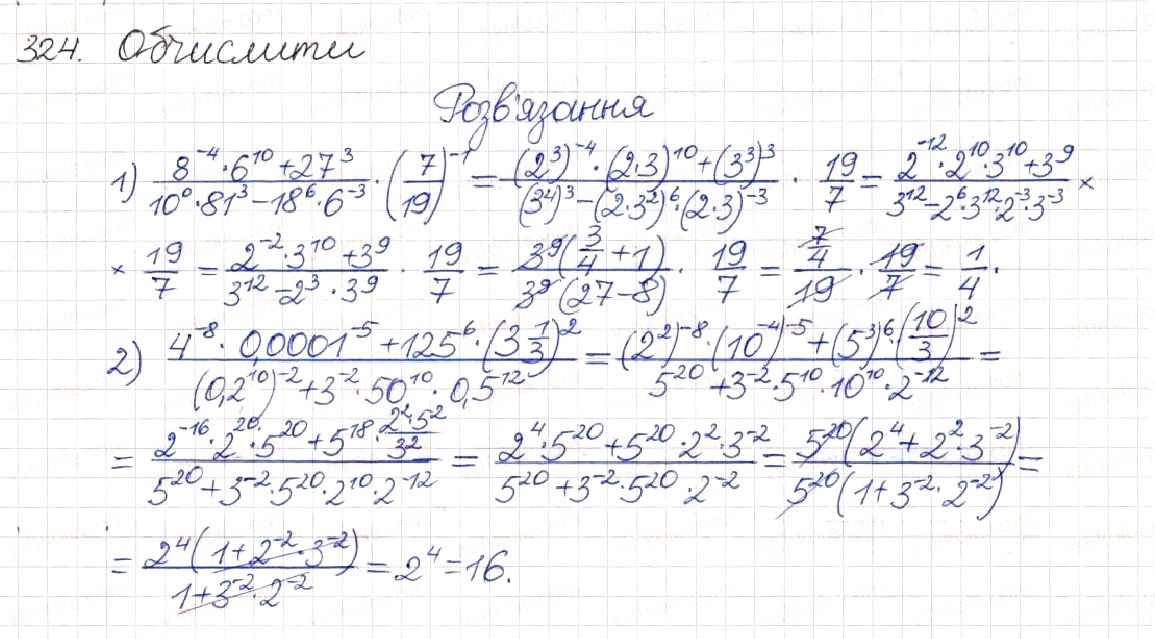 324. Обчислити
Розв'язання
1) (8⁻⁴·6¹⁰+27³)/(10⁰·81³−18⁶·6⁻³)·(7/19)⁻¹=((2³)⁻⁴·(2·3)¹⁰+(3³)³)/((3⁴)³−(2·3²)⁶·(2·3)⁻³)·19/7=(2⁻¹²·2¹⁰·3¹⁰+3⁹)/(3¹²−2⁶·3¹²·2⁻³·3⁻³)×
×19/7=(2⁻²·3¹⁰+3⁹)/(3¹²−2³·3⁹)·19/7=(3⁹(3/4+1))/(3⁹(27−8))·19/7=(7/4)/19·19/7=1/4.
2) (4⁻⁸·0,0001⁻⁵+125⁶·(3 1/3)²)/((0,2¹⁰)⁻²+3⁻²·50¹⁰·0,5¹²)=((2²)⁻⁸·(10⁻⁴)⁻⁵+(5³)⁶·(10/3)²)/(5²⁰+3⁻²·5¹⁰·10¹⁰·2⁻¹²)=
=(2⁻¹⁶·2²⁰·5²⁰+5¹⁸·(2²·5²)/3²)/(5²⁰+3⁻²·5²⁰·2¹⁰·2⁻¹²)=(2⁴·5²⁰+5²⁰·2²·3⁻²)/(5²⁰+3⁻²·5²⁰·2⁻²)=(5²⁰(2⁴+2²·3⁻²))/(5²⁰(1+3⁻²·2⁻²))=
=(2⁴(1+2⁻²·3⁻²))/(1+3⁻²·2⁻²)=2⁴=16.